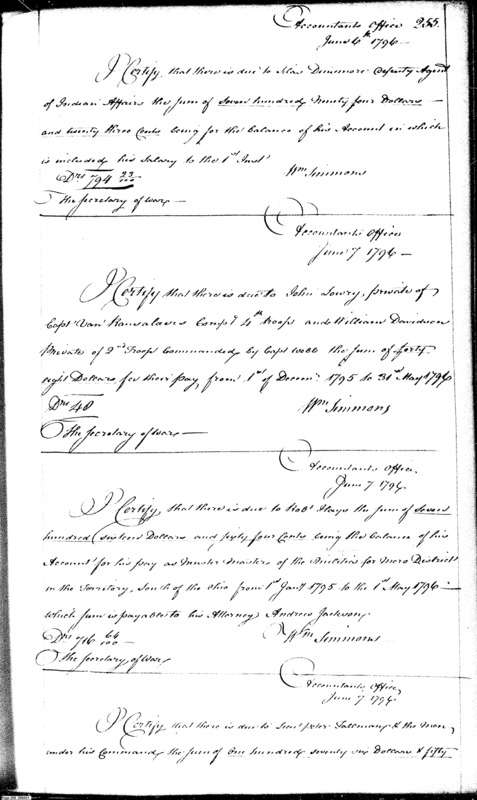 Accountants Office 255.
June 6th 1796 —
I Certify, that there is due to Silas Dinsmore Deputy Agent
of Indian Affairs the sum of Seven hundred Ninety four Dollars —
and twenty three Cents being for the balance of his Account in which
is included his Salary to the 1st Inst
Drs 794 23/100
Wm Simmons
The Secretary of War —
Accountants Office
June 7 1796 —
I Certify that there is due to John Lowry, private of
Capt Van Ranselaers Compy 4th troop and William Davidson
Private of 2nd Troop Commanded by Capt Webb the sum of forty
eight Dollars for their pay, from 1st of Decemr 1795 to 31st May 1796
Drs 48
Wm Simmons
The Secretary of War —
Accountants Office,
June 7. 1796.
I Certify, that there is due to Robt Hays the sum of Seven
hundred Sixteen Dollars and sixty four Cents being the balance of his
Account for his pay as Muster Master of the Militia for Mero District
in the Territory, South of the Ohio from 1st Jany 1795 to the 1st May 1796 —
which sum is payable to his Attorney Andrew Jackson,
Drs 716 64/100
Wm Simmons
The Secretary of War
Accountants Office,
June 7. 1796
I Certify that there is due to Peter Talleman & the Men,
under his Command, the sum of One hundred seventy six Dollars & fifty